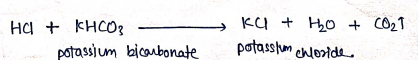 HCl + KHCO₃ ⟶ KCl + H₂O + CO₂↑
potassium bicarbonate potassium chloride